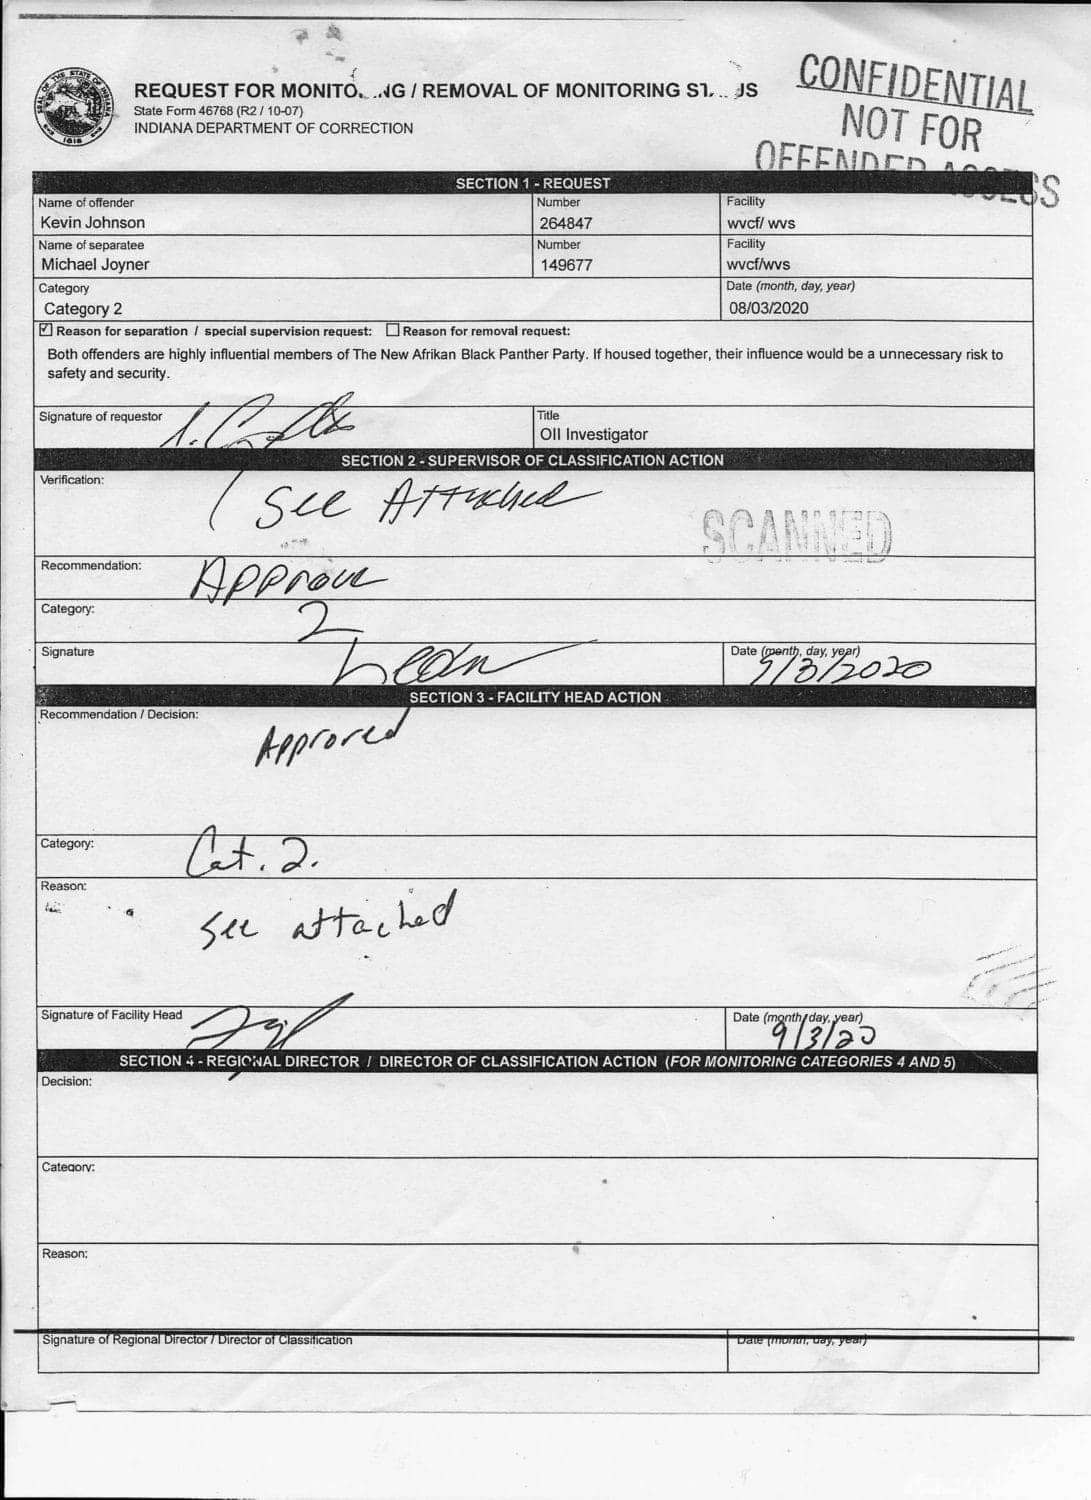 CONFIDENTIAL
NOT FOR
OFFENDER ACCESS
SEAL OF THE STATE OF INDIANA
1816
REQUEST FOR MONITO NG / REMOVAL OF MONITORING ST US
State Form 46768 (R2 / 10-07)
INDIANA DEPARTMENT OF CORRECTION
SECTION 1 - REQUEST
Name of offender Number Facility
Kevin Johnson 264847 wvcf/ wvs
Name of separatee Number Facility
Michael Joyner 149677 wvcf/wvs
Category Date (month, day, year)
Category 2 08/03/2020
Reason for separation / special supervision request: Reason for removal request:
Both offenders are highly influential members of The New Afrikan Black Panther Party. If housed together, their influence would be a unnecessary risk to
safety and security.
Signature of requestor Title
OII Investigator
SECTION 2 - SUPERVISOR OF CLASSIFICATION ACTION
Verification: See Attached
SCANNED
Recommendation: Approve
Category: 2
Signature Date (month, day, year)
9/3/2020
SECTION 3 - FACILITY HEAD ACTION
Recommendation / Decision:
Approved
Category: Cat. 2.
Reason:
See attached
Signature of Facility Head Date (month, day, year)
9/3/20
SECTION 4 - REGIONAL DIRECTOR / DIRECTOR OF CLASSIFICATION ACTION (FOR MONITORING CATEGORIES 4 AND 5)
Decision:
Category:
Reason:
Signature of Regional Director / Director of Classification Date (month, day, year)